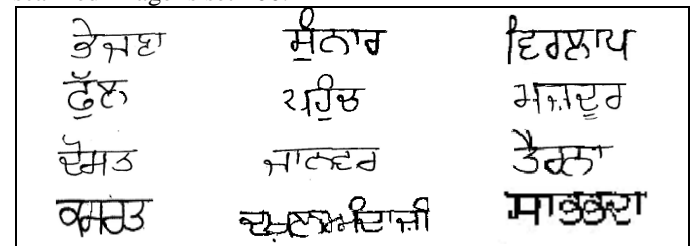 ਭੇਜਣਾ ਸੁੰਨਾਰ ਵਿਰਲਾਪ
ਫੁੱਲ ਪਹੁੰਚ ਮਜ਼ਦੂਰ
ਦੋਸਤ ਜਾਨਵਰ ਤੈਰਨਾ
ਕਸਰਤ ਦਖ਼ਲਅੰਦਾਜ਼ੀ